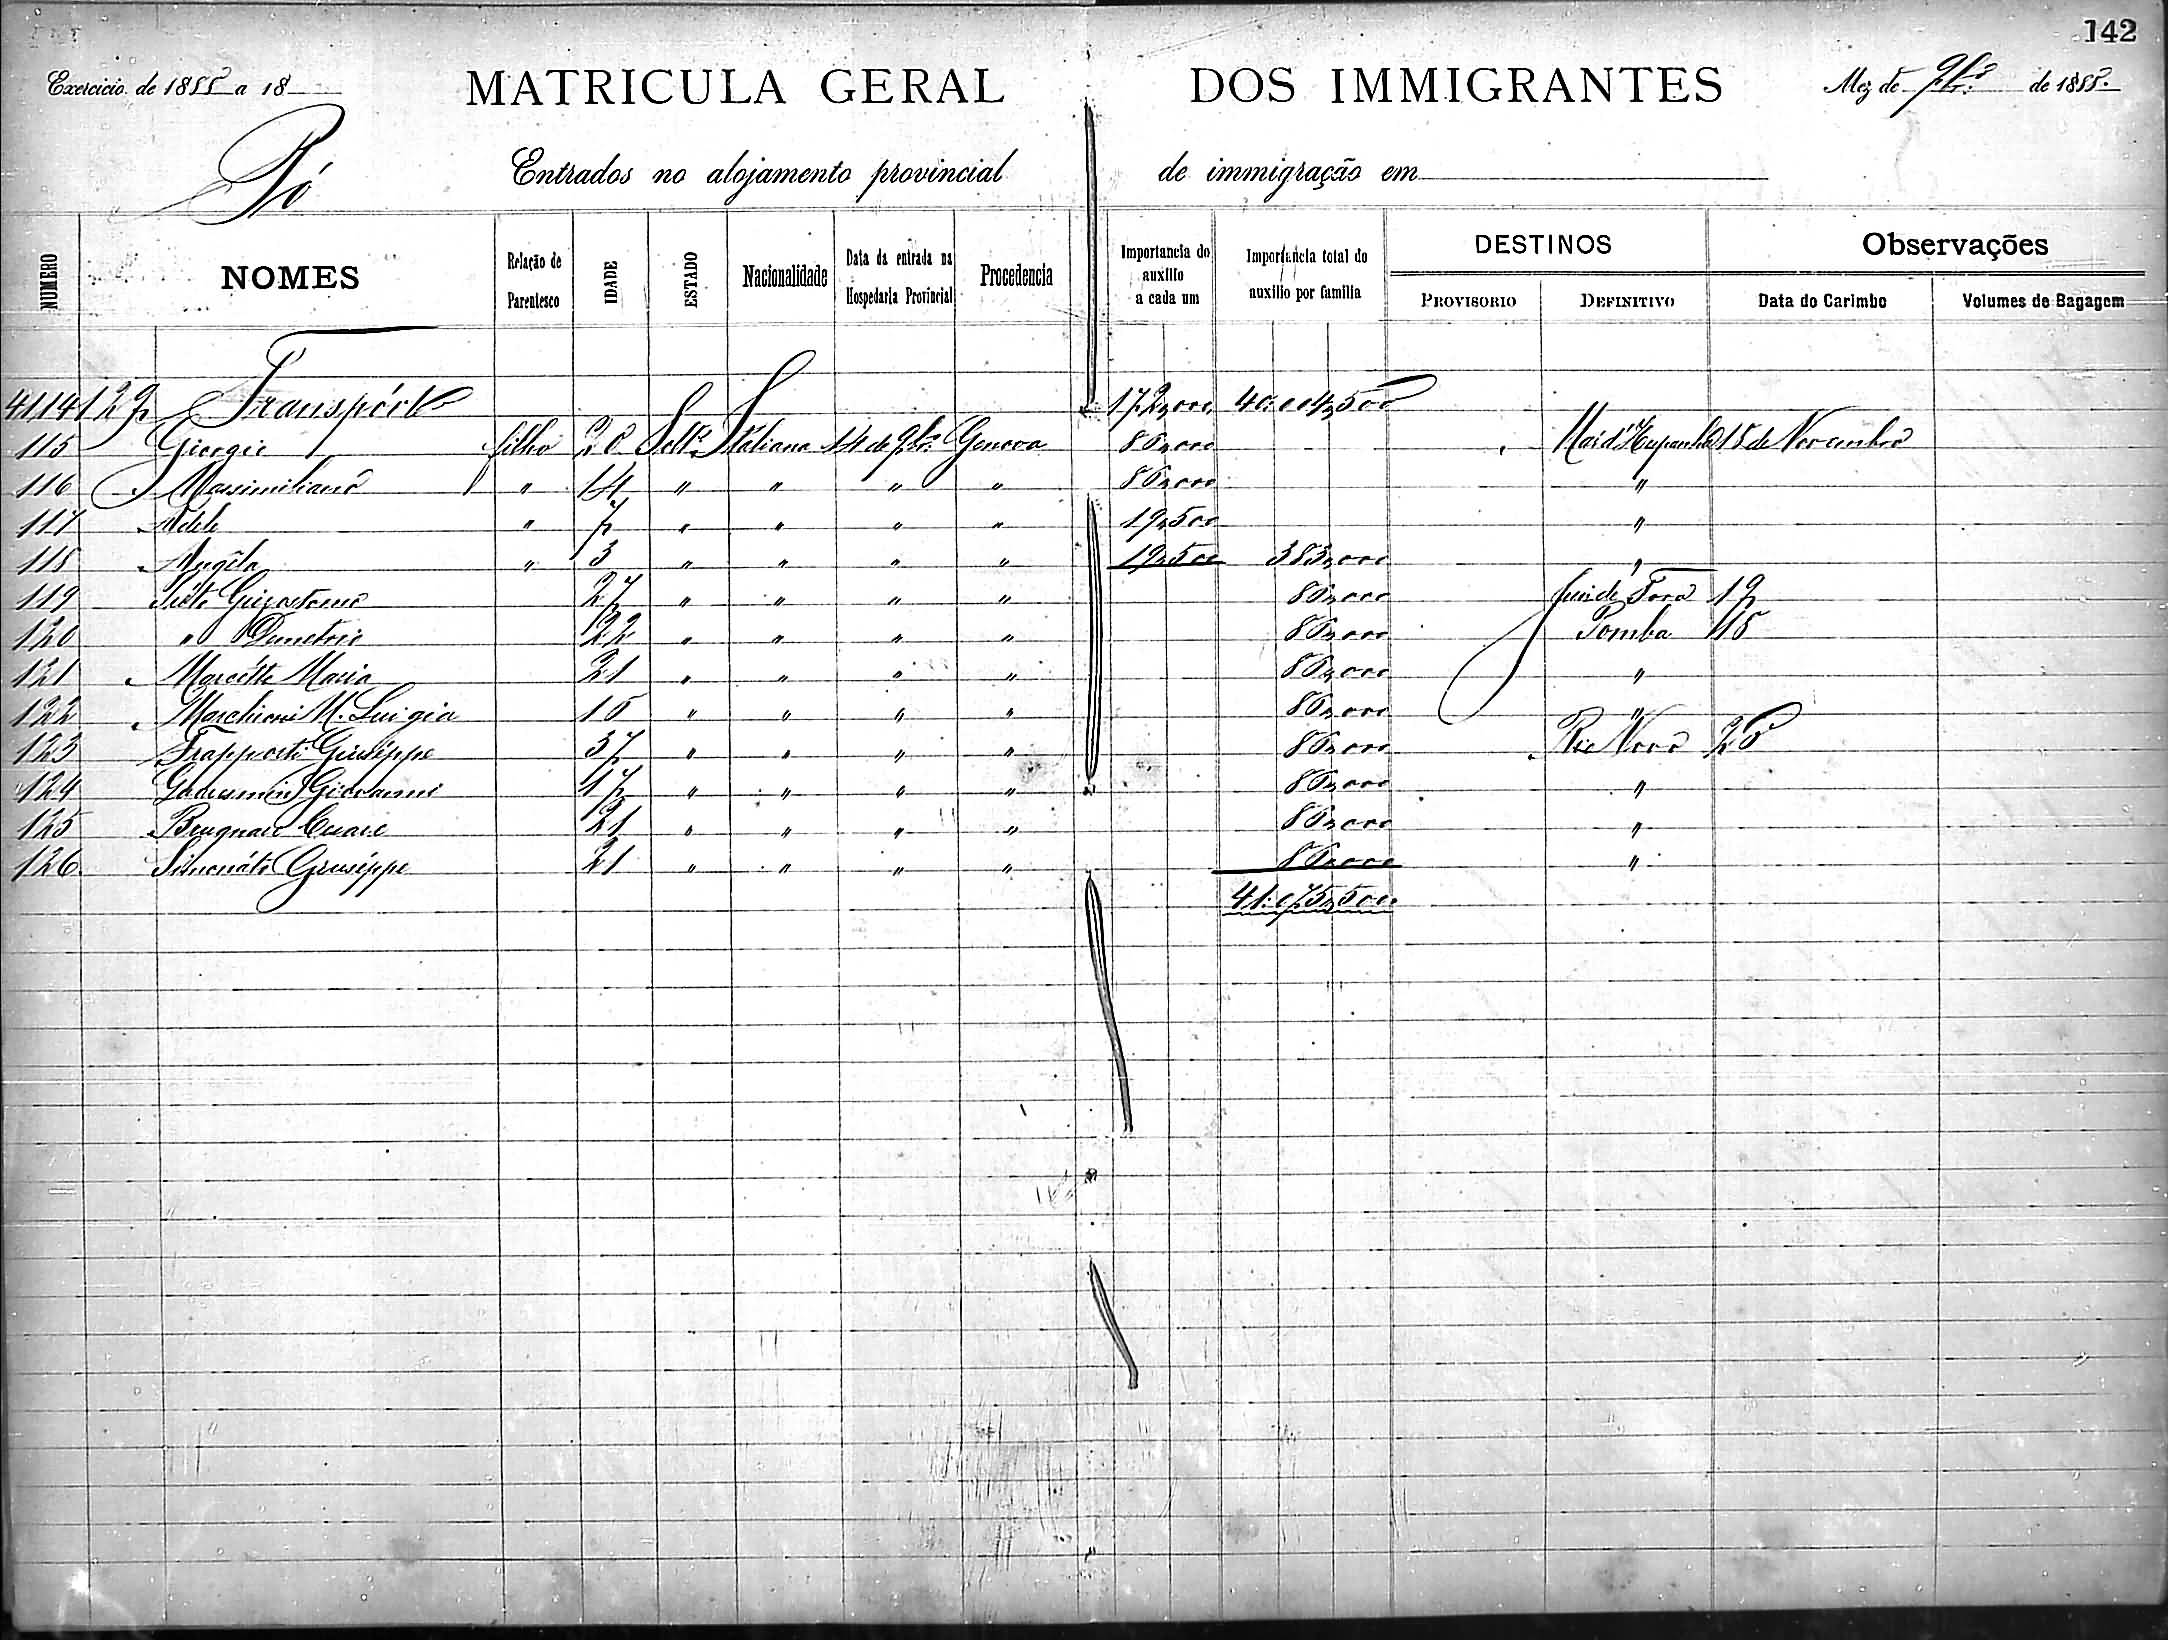 142
Exercicio de 1888 a 18
MATRICULA GERAL DOS IMMIGRANTES
Mez de 9br.o de 1888.
Pó
Entrados no alojamento provincial de immigração em
NUMERO NOMES Relação de Parentesco IDADE ESTADO Nacionalidade Data da entrada na Hospedaria Provincial Procedencia Importancia do auxilio a cada um Importancia total do auxilio por familia DESTINOS Observações
PROVISORIO DEFINITIVO Data do Carimbo Volumes de Bagagem
4114 Transpórte 172,000 40:004,500
115 Giorgio filho 20 Solt.o Italiana 14 de 9br.o Genova 86,000 Mar d'Hespanha 18 de Novembro
116 Massimiliano " 14 " " " " 86,000 "
117 Adele " 7 " " " " 19,500 "
118 Angéla " 3 " " " " 19,500 383,000 "
119 27 " " " " 86,000 Juiz de Fora 19
120 " Demetrio 22 " " " " 86,000 Pomba 15
121 Maria 21 " " " " 86,000 "
122 Marchioni M. Luigia 16 " " " " 86,000 "
123 Trapporti Giuséppe 37 " " " " 86,000 Rio Novo 26
124 Giovanni 47 " " " " 86,000 "
125 21 " " " " 86,000 "
126 Simonáto Giuséppe 21 " " " " 86,000 "
41:075,500